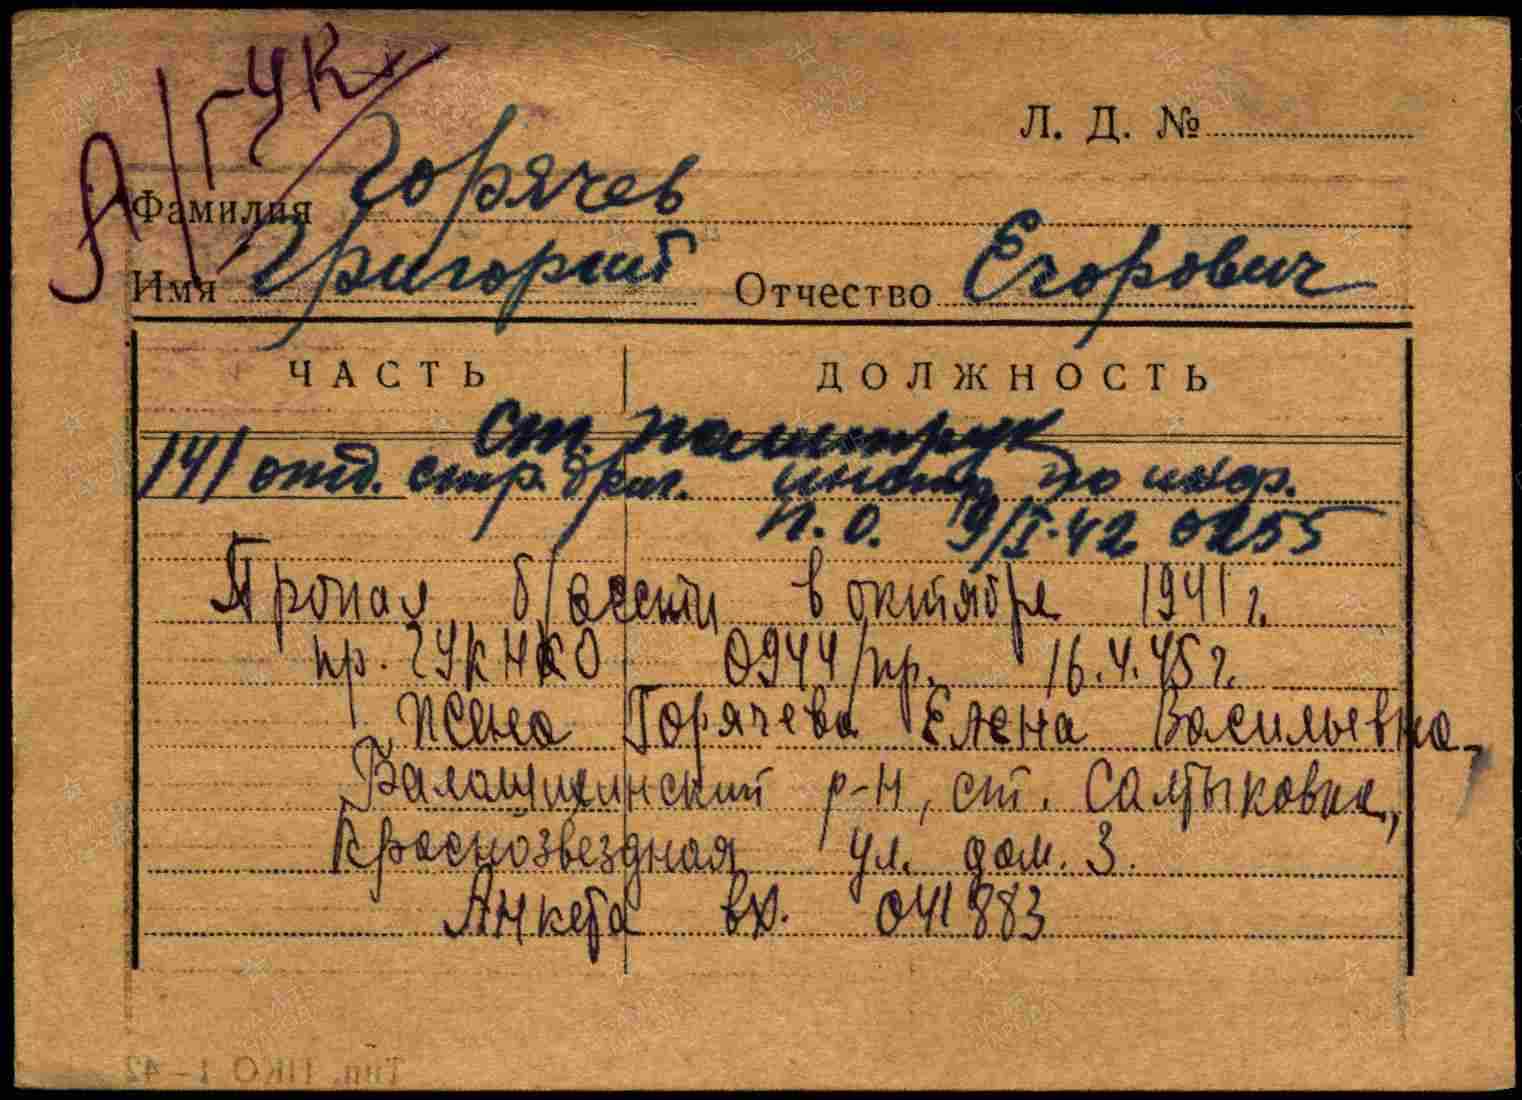 А/ГУК
Л. Д. №
Фамилия Горячев
Имя Григорий Отчество Егорович
ЧАСТЬ ДОЛЖНОСТЬ
ст. политрук
141 отд. стр. бриг. инстр по инфр.
п. о. 9/I-42 0255
Пропал б/вести в октябре 1941 г.
пр. ГУК НКО 0944/пр. 16.4.45 г.
Жена Горячева Елена Васильевна,
Балашихинский р-н, ст. Салтыковка,
Краснозвездная ул. дом. 3.
Анкета вх. 041883
Тип. НКО 1-42